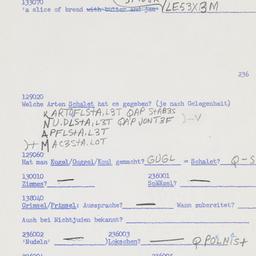 133070
'a slice of bread with butter and jam' /LE53X3M
236
129020
Welche Arten Schalet hat es gegeben? (je nach Gelegenheit)
KARTOFLSTA,L3T QAP STAB3S
NU.DLSTA,L3T QAP JONT3F )-V
APFLSTA,L3T
)+ MAC3STA.LOT
129060
Hat man Kugel/Guggel/Koul gemacht? GUGL = Schalet? Q-S
130010 236001
Zimmes? — Soükzel? —
138040
Grimsel/Frimsel: Aussprache? — Wann zubereitet?
Auch bei Nichtjuden bekannt?
236002 236003
'Nudeln' — )Lokschen? — Q POLNIST